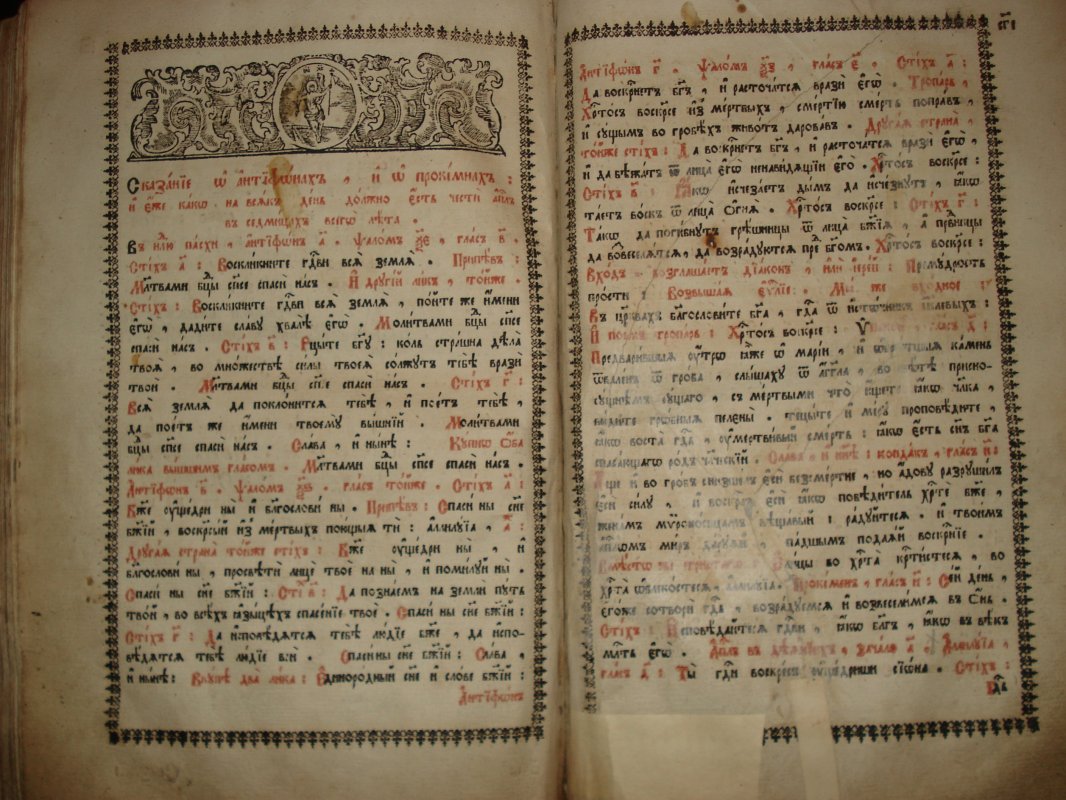 Сказа́нїе ѡ҆ а҆нтїфѡ́нахъ , и҆ ѡ҆ прокі́мнахъ :
и҆ є҆́же какѡ на всякъ день до́лжно є҆́сть честѝ а҆п҃лъ
въ седми́цахъ всегѡ̀ лѣ́та .
Въ нл҃ю пасхи , а҆нтїфѡ́нъ а҃ . Ѱало́мъ ѯ҃є , гла́съ в҃ .
Сті́хъ а҃ : Воскли́кните гд҇ви всѧ̀ землѧ̀ . Припѣ́въ :
Мл҃твами бц҃ы сп҃се спасѝ на́съ . И҆ дрꙋгі́й ли́къ , то́йже .
Сті́хъ : Воскли́кните гд҇ви всѧ̀ землѧ̀ , по́йте же и҆́мени
є҆гѡ̀ , дади́те сла́вꙋ хвалѣ̀ є҆гѡ̀ . Моли́твами бц҃ы сп҃се
спасѝ на́съ . Сті́хъ в҃ : Рцы́те бг҃ꙋ : ко́ль стра̑шна дѣла̀
твоѧ̀ , во мно́жествѣ си́лы твоеѧ̀ со́лжꙋтъ тебѣ̀ вразѝ
твоѝ . Мл҃твами бц҃ы сп҃се спасѝ на́съ . Сті́хъ г҃ :
Всѧ̀ землѧ̀ да поклони́тсѧ тебѣ̀ , и҆ пое́тъ тебѣ̀ ,
да пое́тъ же и҆́мени твоемꙋ̀ вы́шнїй . Моли́твами
бц҃ы сп҃се спасѝ на́съ . Сла́ва , и҆ ны́нѣ : Кꙋ́пнѡ ѻ҆́ба
ли́ка вы́шшимъ гла́сомъ . Мл҃твами бц҃ы сп҃се спасѝ на́съ .
А҆нтїфѡ́нъ в҃ . Ѱало́мъ ѯ҃ѕ . гла́съ то́йже . Сті́хъ а҃ :
Бж҃е ᲂу҆ще́дри ны̀ и҆ бл҃гослови́ ны . Припѣ́въ : Спаси́ ны сн҃е
бж҃їй , воскре́сый и҆з̾ ме́ртвыхъ пою́щыѧ тѝ : а҆ллилꙋ́їа , а҃ :
Дрꙋга́ѧ страна̀ то́йже сті́хъ : Бж҃е ᲂу҆ще́дри ны̀ , и҆
бл҃гослови́ ны , просвѣтѝ лицѐ твоѐ на ны̀ , и҆ поми́лꙋй ны̀ .
Спаси́ ны сн҃е бж҃їй : Сті́хъ в҃ : Да позна́емъ на землѝ пꙋ́ть
тво́й , во всѣ́хъ ꙗ҆зы́цѣхъ спасе́нїе твоѐ . Спаси́ ны сн҃е бж҃їй :
Сті́хъ г҃ : Да и҆сповѣ́дѧтсѧ тебѣ̀ лю́дїе бж҃е , да и҆спо-
вѣ́дѧтсѧ тебѣ̀ лю́дїе всѝ . Спаси́ ны сн҃е бж҃їй : Сла́ва ,
и҆ ны́нѣ : Вкꙋ́пѣ два̀ ли́ка : Є҆диноро́дный сн҃е и҆ сло́ве бж҃їй :
А҆нтїфѡ́нъ
А҆нтїфѡ́нъ г҃ . Ѱало́мъ ѯ҃з , гла́съ є҃ . Сті́хъ а҃ :
Да воскрⷭ҇нетъ бг҃ъ , и҆ расточа́тсѧ вразѝ є҆гѡ̀ . Тропа́рь ,
Хрⷭ҇то́съ воскр҃се и҆з̾ ме́ртвыхъ , сме́ртїю сме́рть попра́въ ,
и҆ сꙋ́щымъ во гробѣ́хъ живо́тъ дарова́въ . Дрꙋга́ѧ страна̀ ,
то́йже сті́хъ : Да воскрⷭ҇нетъ бг҃ъ , и҆ расточа́тсѧ вразѝ є҆гѡ̀ ,
и҆ да бѣжа́тъ ѿ лица̀ є҆гѡ̀ ненави́дѧщїи є҆го̀ . Хрⷭ҇то́съ воскр҃се :
Сті́хъ в҃ : Ꙗ҆́кѡ и҆счеза́етъ ды́мъ да и҆сче́знꙋтъ , ꙗ҆́кѡ
та́етъ во́скъ ѿ лица̀ ѻ҆гнѧ̀ . Хрⷭ҇то́съ воскр҃се : Сті́хъ г҃ :
Та́кѡ да поги́бнꙋтъ грѣ́шницы ѿ лица̀ бж҃їѧ , а҆ првⷣницы
да возвеселѧ́тсѧ , да возра́дꙋютсѧ пред̾ бг҃омъ . Хрⷭ҇то́съ воскр҃се :
Вхо́дъ . возглаша́етъ дїа́конъ , и҆лѝ і҆ере́й : Премꙋ́дрость
про́сти : Возвыша́ѧ є҆ѵ҃лїе . Мы́ же вхо́дное :
Въ цр҃квахъ благослови́те бг҃а , гд҇а ѿ и҆сто́чникъ і҆и҃левыхъ .
И҆ тропа́рь : Хрⷭ҇то́съ воскр҃се : гла́съ д҃ :
Предвари́вшыѧ ᲂу҆́тро ꙗ҆̀же ѡ҆ марі́и , и҆ ка́мень
ѿвале́нъ ѿ гро́ба , слы́шахꙋ ѿ а҆́гг҃ла , во свѣ́тѣ присно-
сꙋ́щнѣмъ сꙋ́щаго , съ ме́ртвыми что̀ и҆́щете ꙗ҆́кѡ чл҃ка ,
ви́дите грѡ́бныѧ пелены̀ . тецы́те и҆ мі́рꙋ проповѣ́дите ,
ꙗ҆́кѡ воста̀ гд҇ь , ᲂу҆мертви́вый сме́рть : ꙗ҆́кѡ є҆́сть сн҃ъ бг҃а
спаса́ющагѡ ро́дъ чл҃ческїй . Сла́ва и҆ нн҃ѣ : конда́къ , гла́съ и҃ :
А҆́ще и҆ во гро́бъ сни́зшелъ є҆сѝ безсме́ртне , но а҆́довꙋ разрꙋши́лъ
є҆сѝ си́лꙋ , и҆ воскре́слъ є҆сѝ ꙗ҆́кѡ побѣди́тель хрⷭ҇тѐ бж҃е ,
жена́мъ мѷроно́сицамъ вѣща́вый : ра́дꙋйтесѧ . и҆ твои̑мъ
а҆п҃лѡмъ ми́ръ да́рꙋѧй , па́дшымъ подаѧ́й воскрⷭ҇нїе .
Вмѣ́стѡ трист҃а́гѡ : Є҆ли́цы во хрⷭ҇та̀ кр҃ти́стесѧ , во
хрⷭ҇та̀ ѡ҆блеко́стесѧ , а҆ллилꙋ́їа . Проки́менъ , гла́съ и҃ : Се́й де́нь ,
є҆го́же сотворѝ гд҇ь , возра́дꙋемсѧ и҆ возвесели́мсѧ во́нь .
Сті́хъ : И҆сповѣ́дайтесѧ гд҇ви , ꙗ҆́кѡ бл҃гъ , ꙗ҆́кѡ въ вѣ́къ
млⷭ҇ть є҆гѡ̀ . А҆п҃лъ въ дѣѧ́нїихъ , зача́ло а҃ . А҆ллилꙋ́їа ,
гла́съ д҃ : Ты̀ гд҇и воскре́съ ᲂу҆ще́дриши сїѡ́на . Сті́хъ :